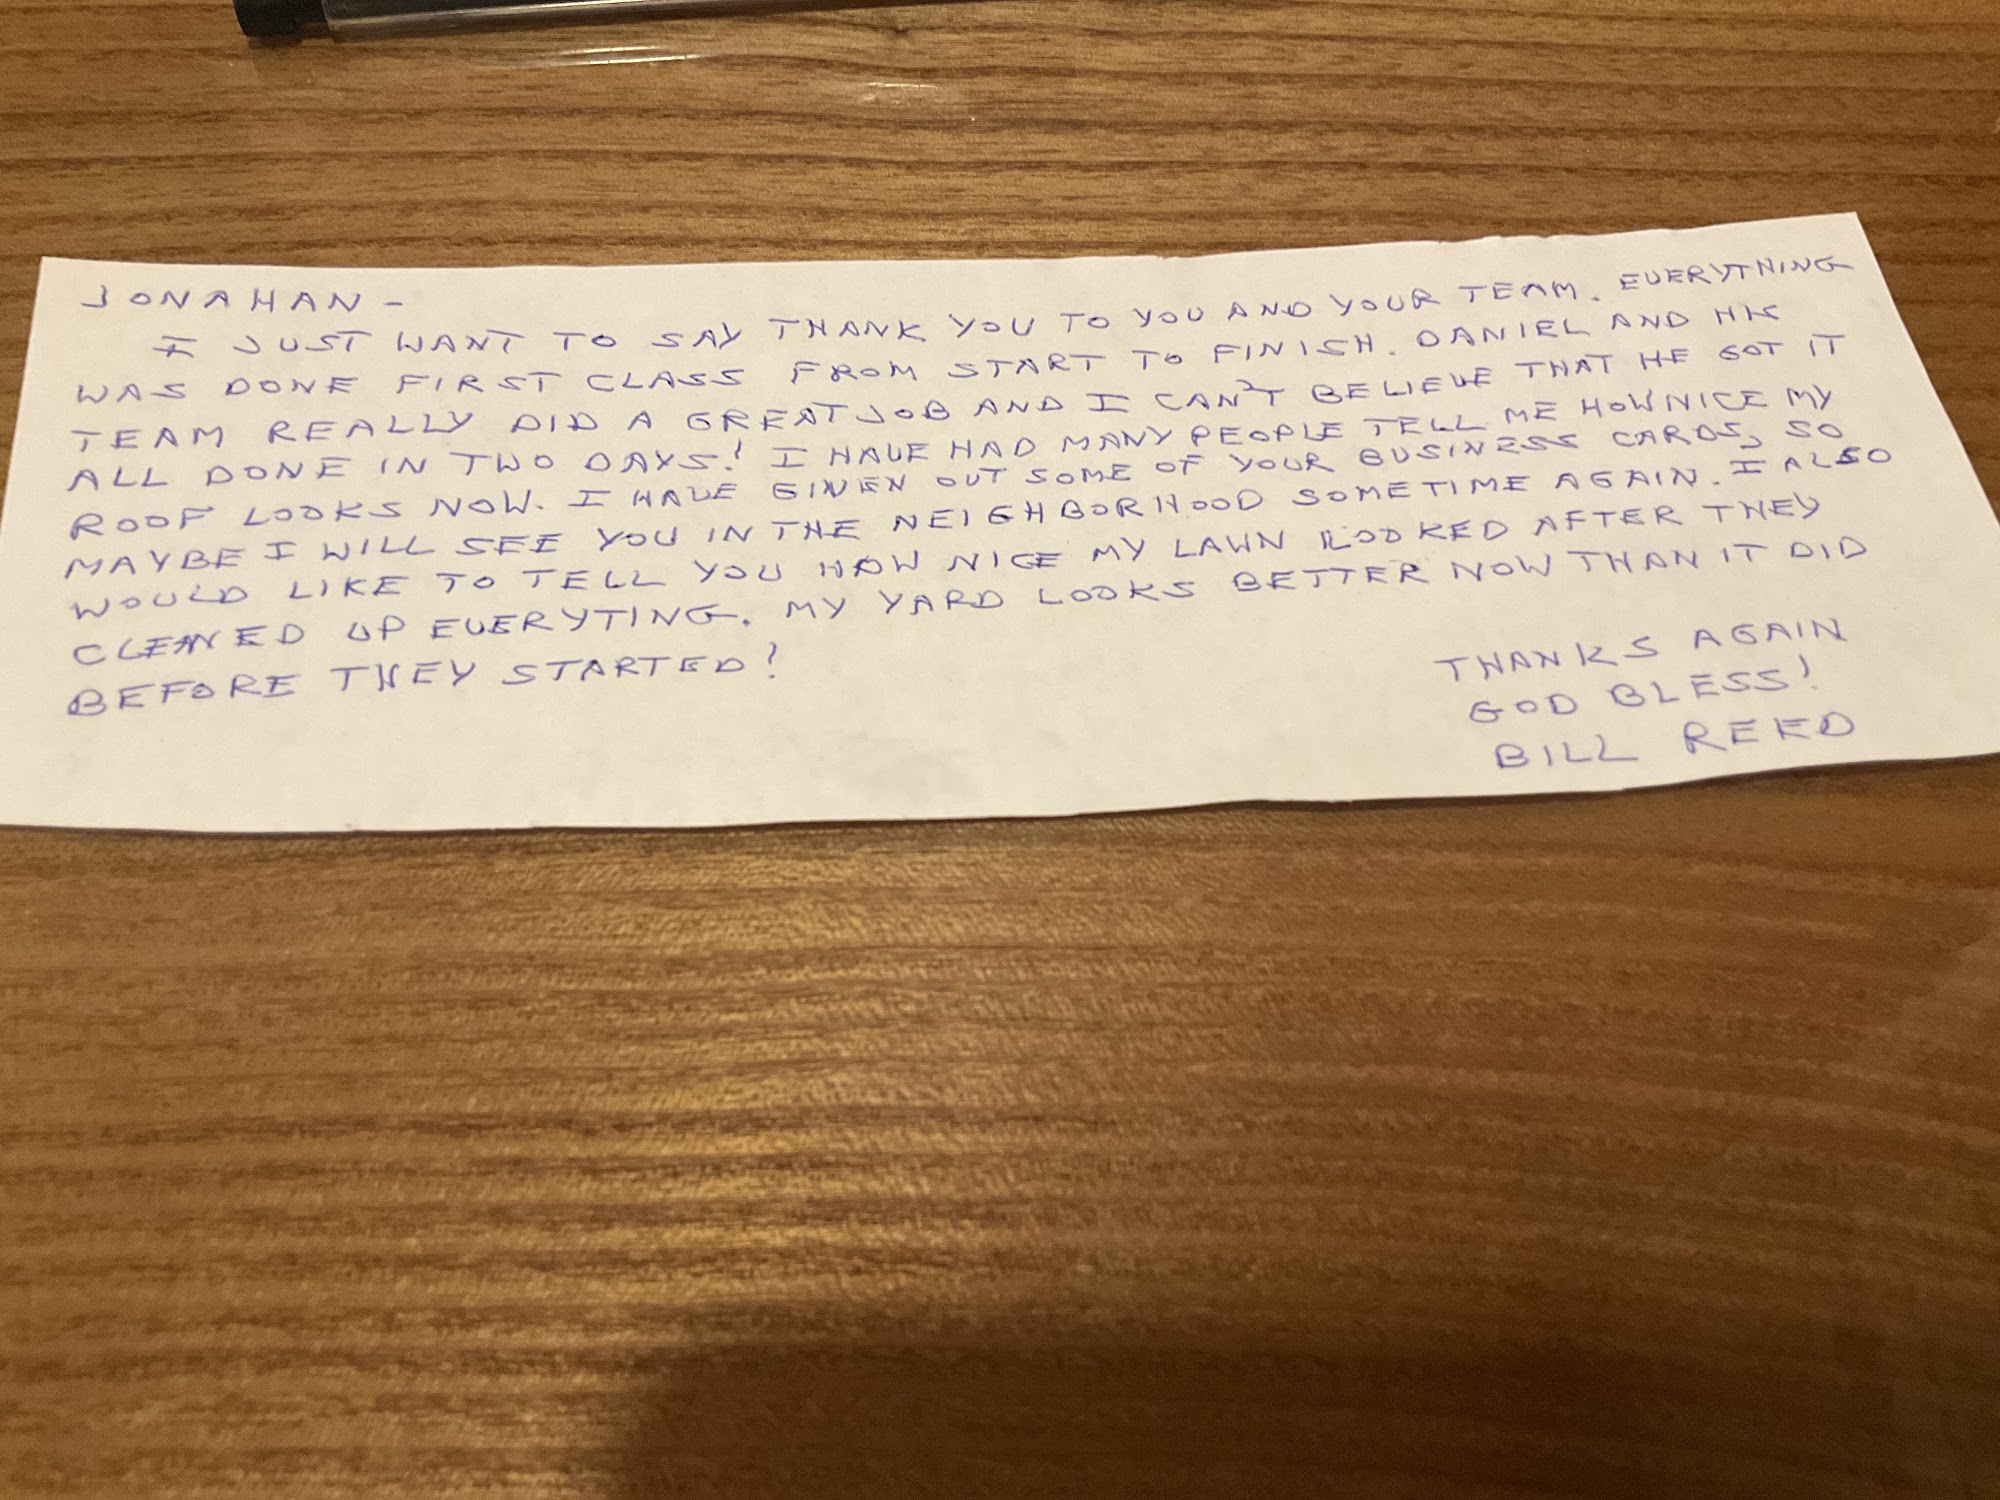 JONAHAN -
I JUST WANT TO SAY THANK YOU TO YOU AND YOUR TEAM. EVERYTHING
WAS DONE FIRST CLASS FROM START TO FINISH. DANIEL AND HIS
TEAM REALLY DID A GREAT JOB AND I CAN'T BELIEVE THAT HE GOT IT
ALL DONE IN TWO DAYS! I HAVE HAD MANY PEOPLE TELL ME HOW NICE MY
ROOF LOOKS NOW. I HAVE GIVEN OUT SOME OF YOUR BUSINESS CARDS, SO
MAYBE I WILL SEE YOU IN THE NEIGHBORHOOD SOMETIME AGAIN. I ALSO
WOULD LIKE TO TELL YOU HOW NICE MY LAWN LOOKED AFTER THEY
CLEANED UP EVERYTING. MY YARD LOOKS BETTER NOW THAN IT DID
BEFORE THEY STARTED!
THANKS AGAIN
GOD BLESS!
BILL REED